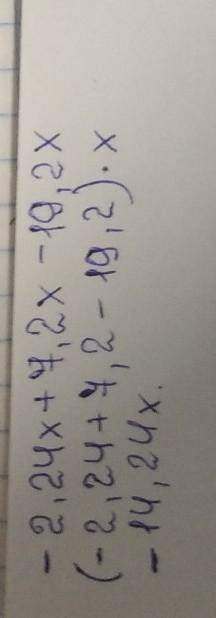 - 2,24x + 7,2x - 19,2x
(- 2,24 + 7,2 - 19,2) · x
- 14,24x.